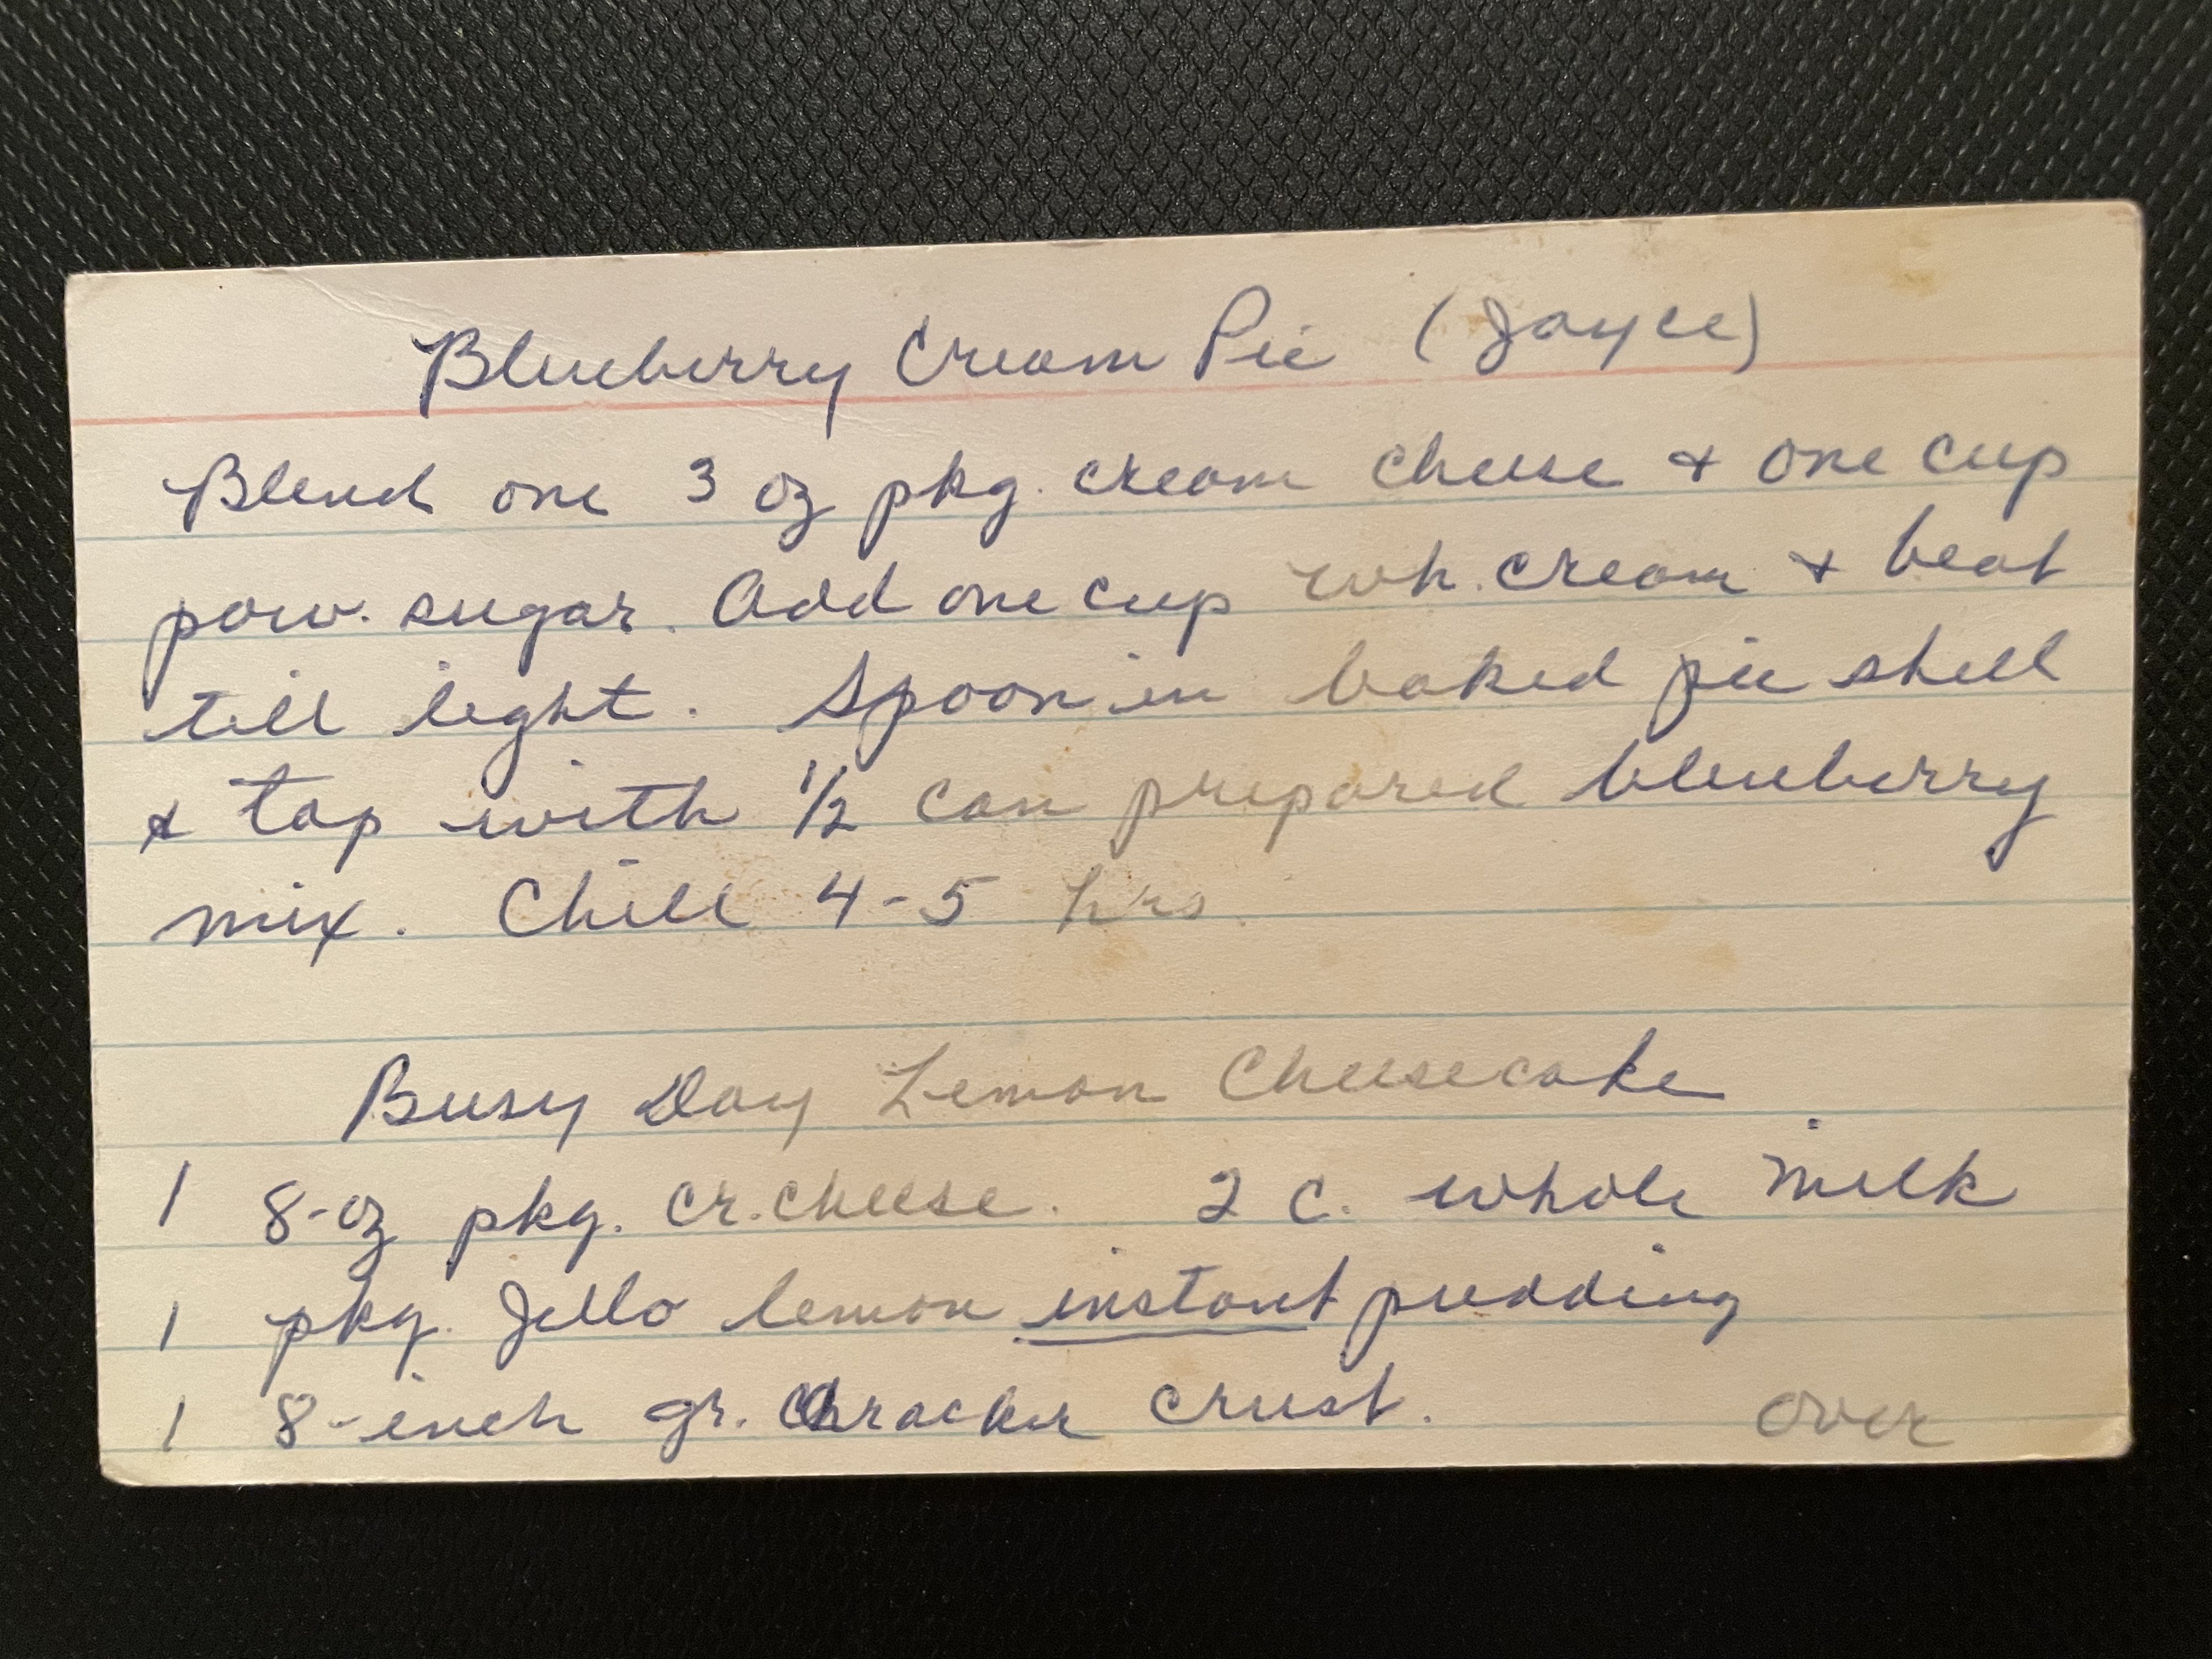 Blueberry Cream Pie (Joyce)
Blend one 3 oz pkg. cream cheese & one cup
pow. sugar. Add one cup wh. cream & beat
till light. Spoon in baked pie shell
& top with 1/2 can prepared blueberry
mix. Chill 4-5 hrs.
Busy Day Lemon Cheesecake
1 8-oz pkg. cr. cheese. 2 c. whole milk
1 pkg. Jello lemon instant pudding
1 8-inch gr. cracker crust. over